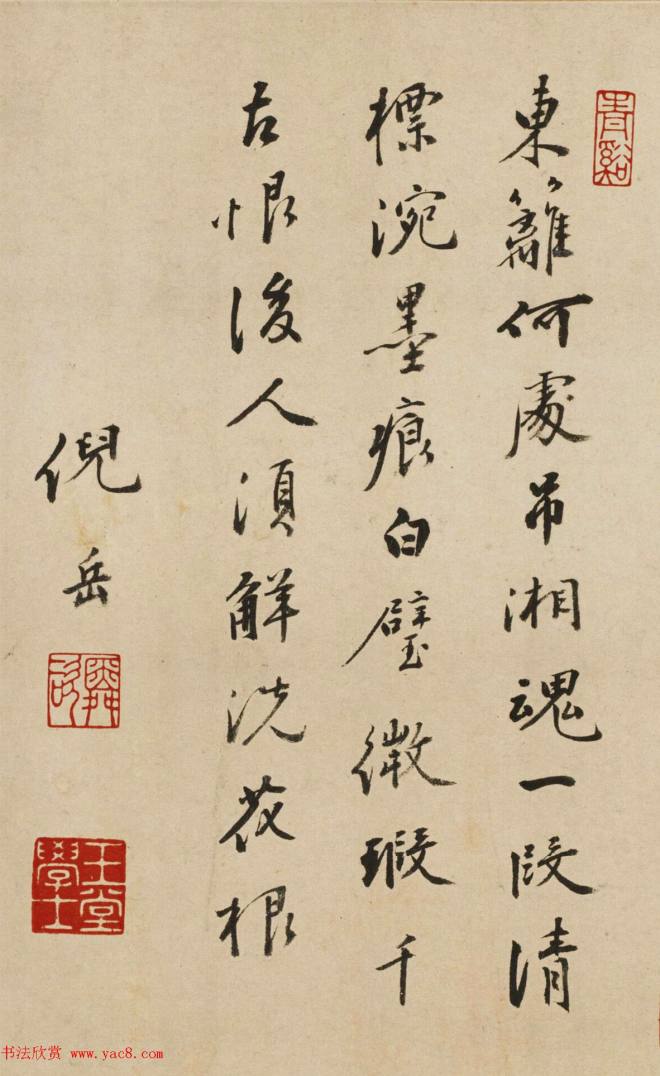 青谿
東籬何處吊湘魂一段清
標涴墨痕白璧微瑕千
古恨後人須解洗花根
倪岳
玉堂學士
书法欣赏 www.yac8.com